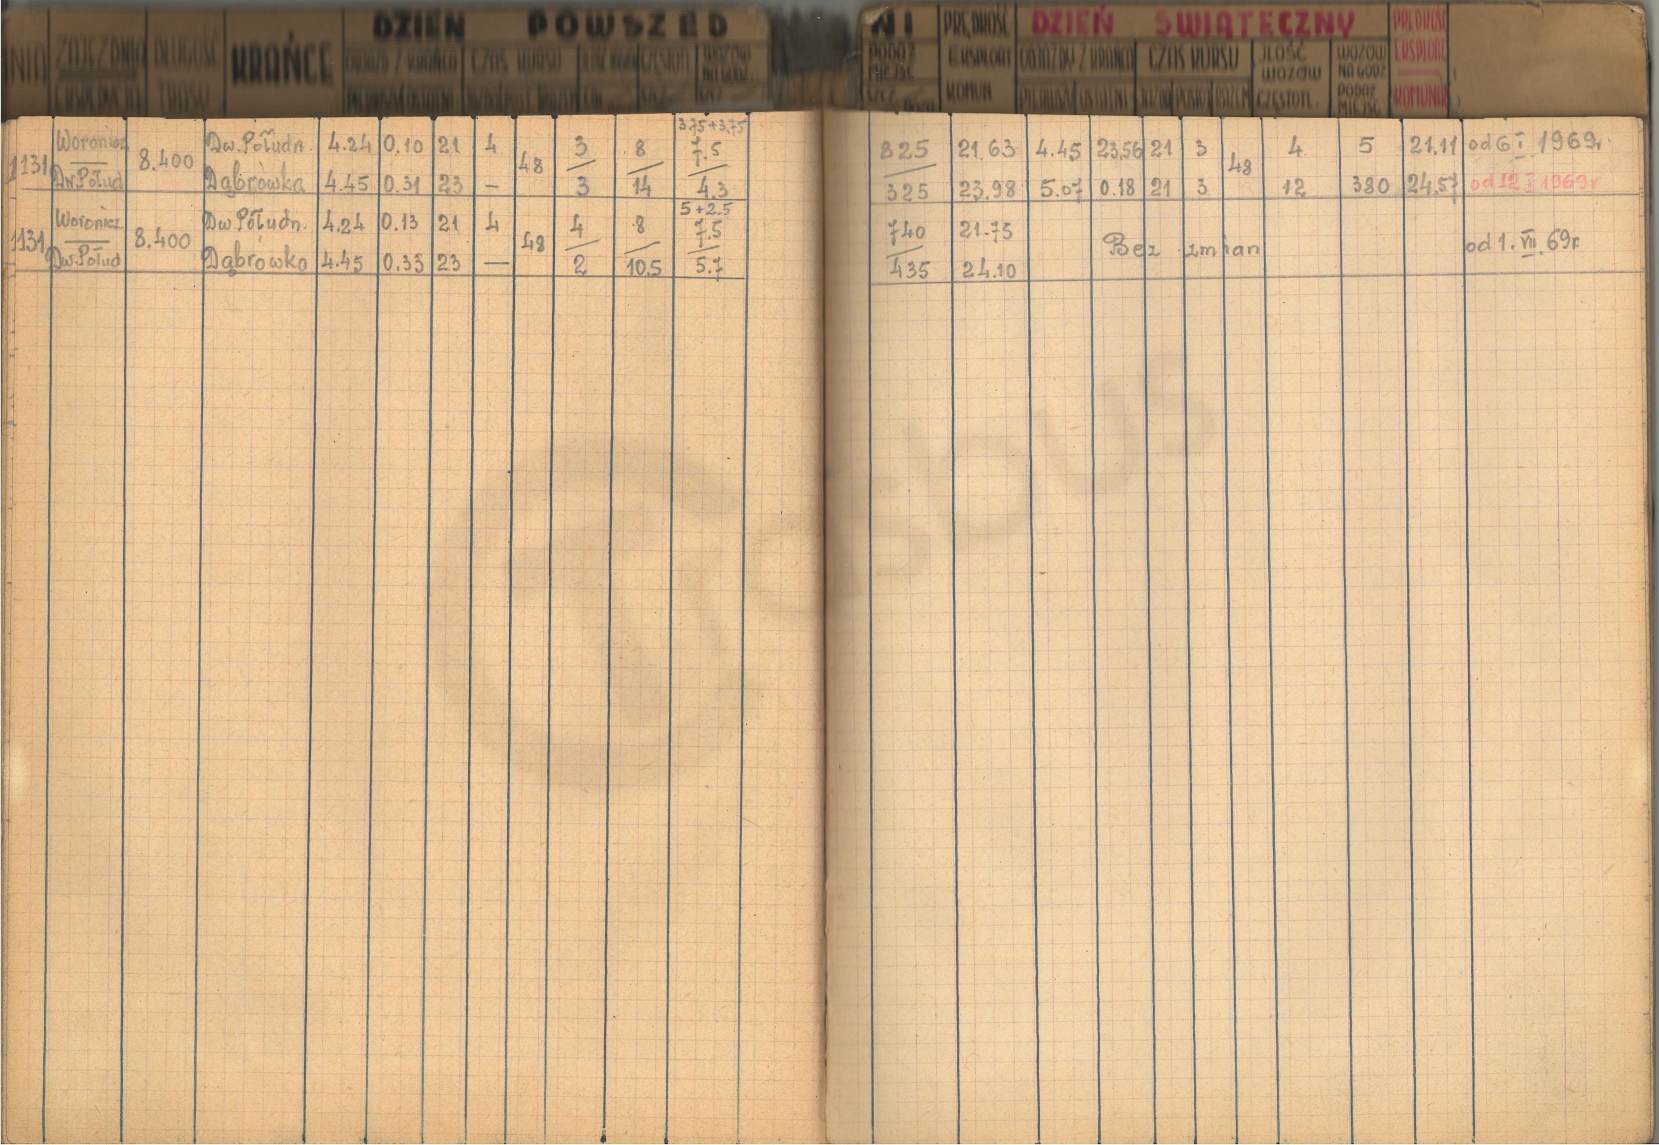 DZIEŃ POWSZED NI DZIEŃ ŚWIĄTECZNY
NIA ZAJEZDNIA DŁUGOŚĆ TRASY KRAŃCE ODJAZD Z KRAŃCA CZAS KURSU WOZÓW NA GODZ.
PODAŻ MIEJSC PRĘDKOŚĆ EKSPLOAT KOMUN ODJAZDY Z KRAŃCA CZAS KURSU JLOŚĆ WOZÓW CZĘSTOTL. WOZÓW NA GODZ PODAŻ MIEJSC PRĘDKOŚĆ EKSPLOAT KOMUNIK
3,75+3,75
Woronicz Dw.Połudn. 4.24 0.10 21 4 3 8 7.5 825 21.63 4.45 23,56 21 3 4 5 21,11 od 6 I 1969r.
1131 8.400 48 48
Dw.Połud Dąbrówka 4.45 0.31 23 – 3 14 4,3 325 23,98 5.07 0.18 21 3 12 380 24,57 od 12 I 1969r
5+2.5
Woronicz Dw.Połudn. 4.24 0.13 21 4 4 8 7.5 740 21.75
1131 8.400 48 Bez zmian od 1. VII. 69r
Dw.Połud Dąbrówka 4.45 0.33 23 — 2 10.5 5.7 435 24.10